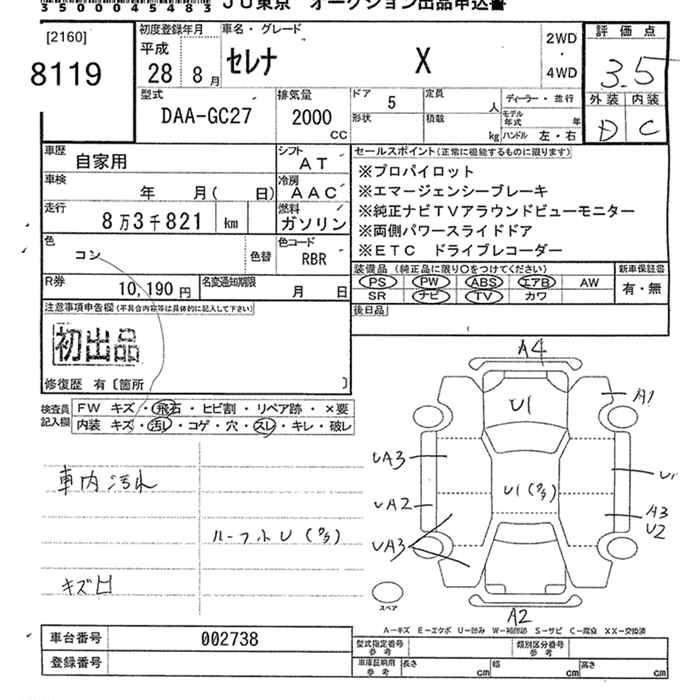 35000454 83 JU東京 オークション出品申込書
[2160]
8119
初度登録年月 車名・グレード
平成
28 8月 セレナ X
2WD
・
4WD
評価点
3.5
外装 内装
D C
型式 排気量 ドア 定員 ディーラー・並行
DAA-GC27 2000 CC 5 人
形状 積載 kg モデル年式 年
ハンドル 左・右
車歴 自家用 シフト AT
車検 年 月( 日) 冷房 AAC
走行 8万3千821 km 燃料 ガソリン
色 コン 色替 色コード RBR
R券 10,190円 名変通知期限 月 日
セールスポイント(正常に機能するものに限ります)
※プロパイロット
※エマージェンシーブレーキ
※純正ナビTVアラウンドビューモニター
※両側パワースライドドア
※ETC ドライブレコーダー
装備品(純正品に限り○をつけてください) 新車保証書
PS PW ABS エアB AW 有・無
SR ナビ TV カワ
後日品
注意事項申告欄(不具合内容等は具体的に記入して下さい)
初出品
修復歴 有〔箇所 〕
検査員記入欄
FW キズ・飛石・ヒビ割・リペア跡・×要
内装 キズ・汚レ・コゲ・穴・スレ・キレ・破レ
車内汚れ
ルーフ小U(タ5)
キズ凹
A4
U1
A1
UA3
U1(タ5)
U1
UA2
A3
U2
UA3
A2
スペア
A-キズ E-エクボ U-凹み W-補修跡 S-サビ C-腐食 XX-交換済
車台番号 002738
登録番号
型式指定番号 参考 類別区分番号 参考
車庫証明用 参考 長さ cm 幅 cm 高さ cm